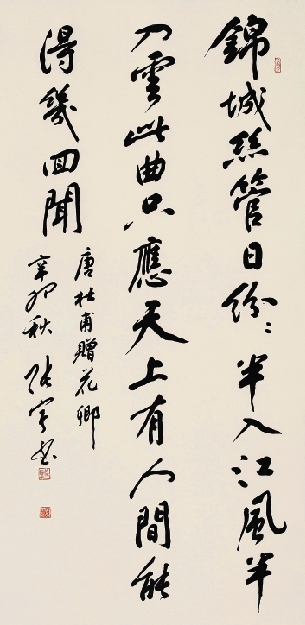 錦城絲管日紛〻半入江風半
入雲此曲只應天上有人間能
得幾回聞
唐杜甫贈花卿
辛卯秋書